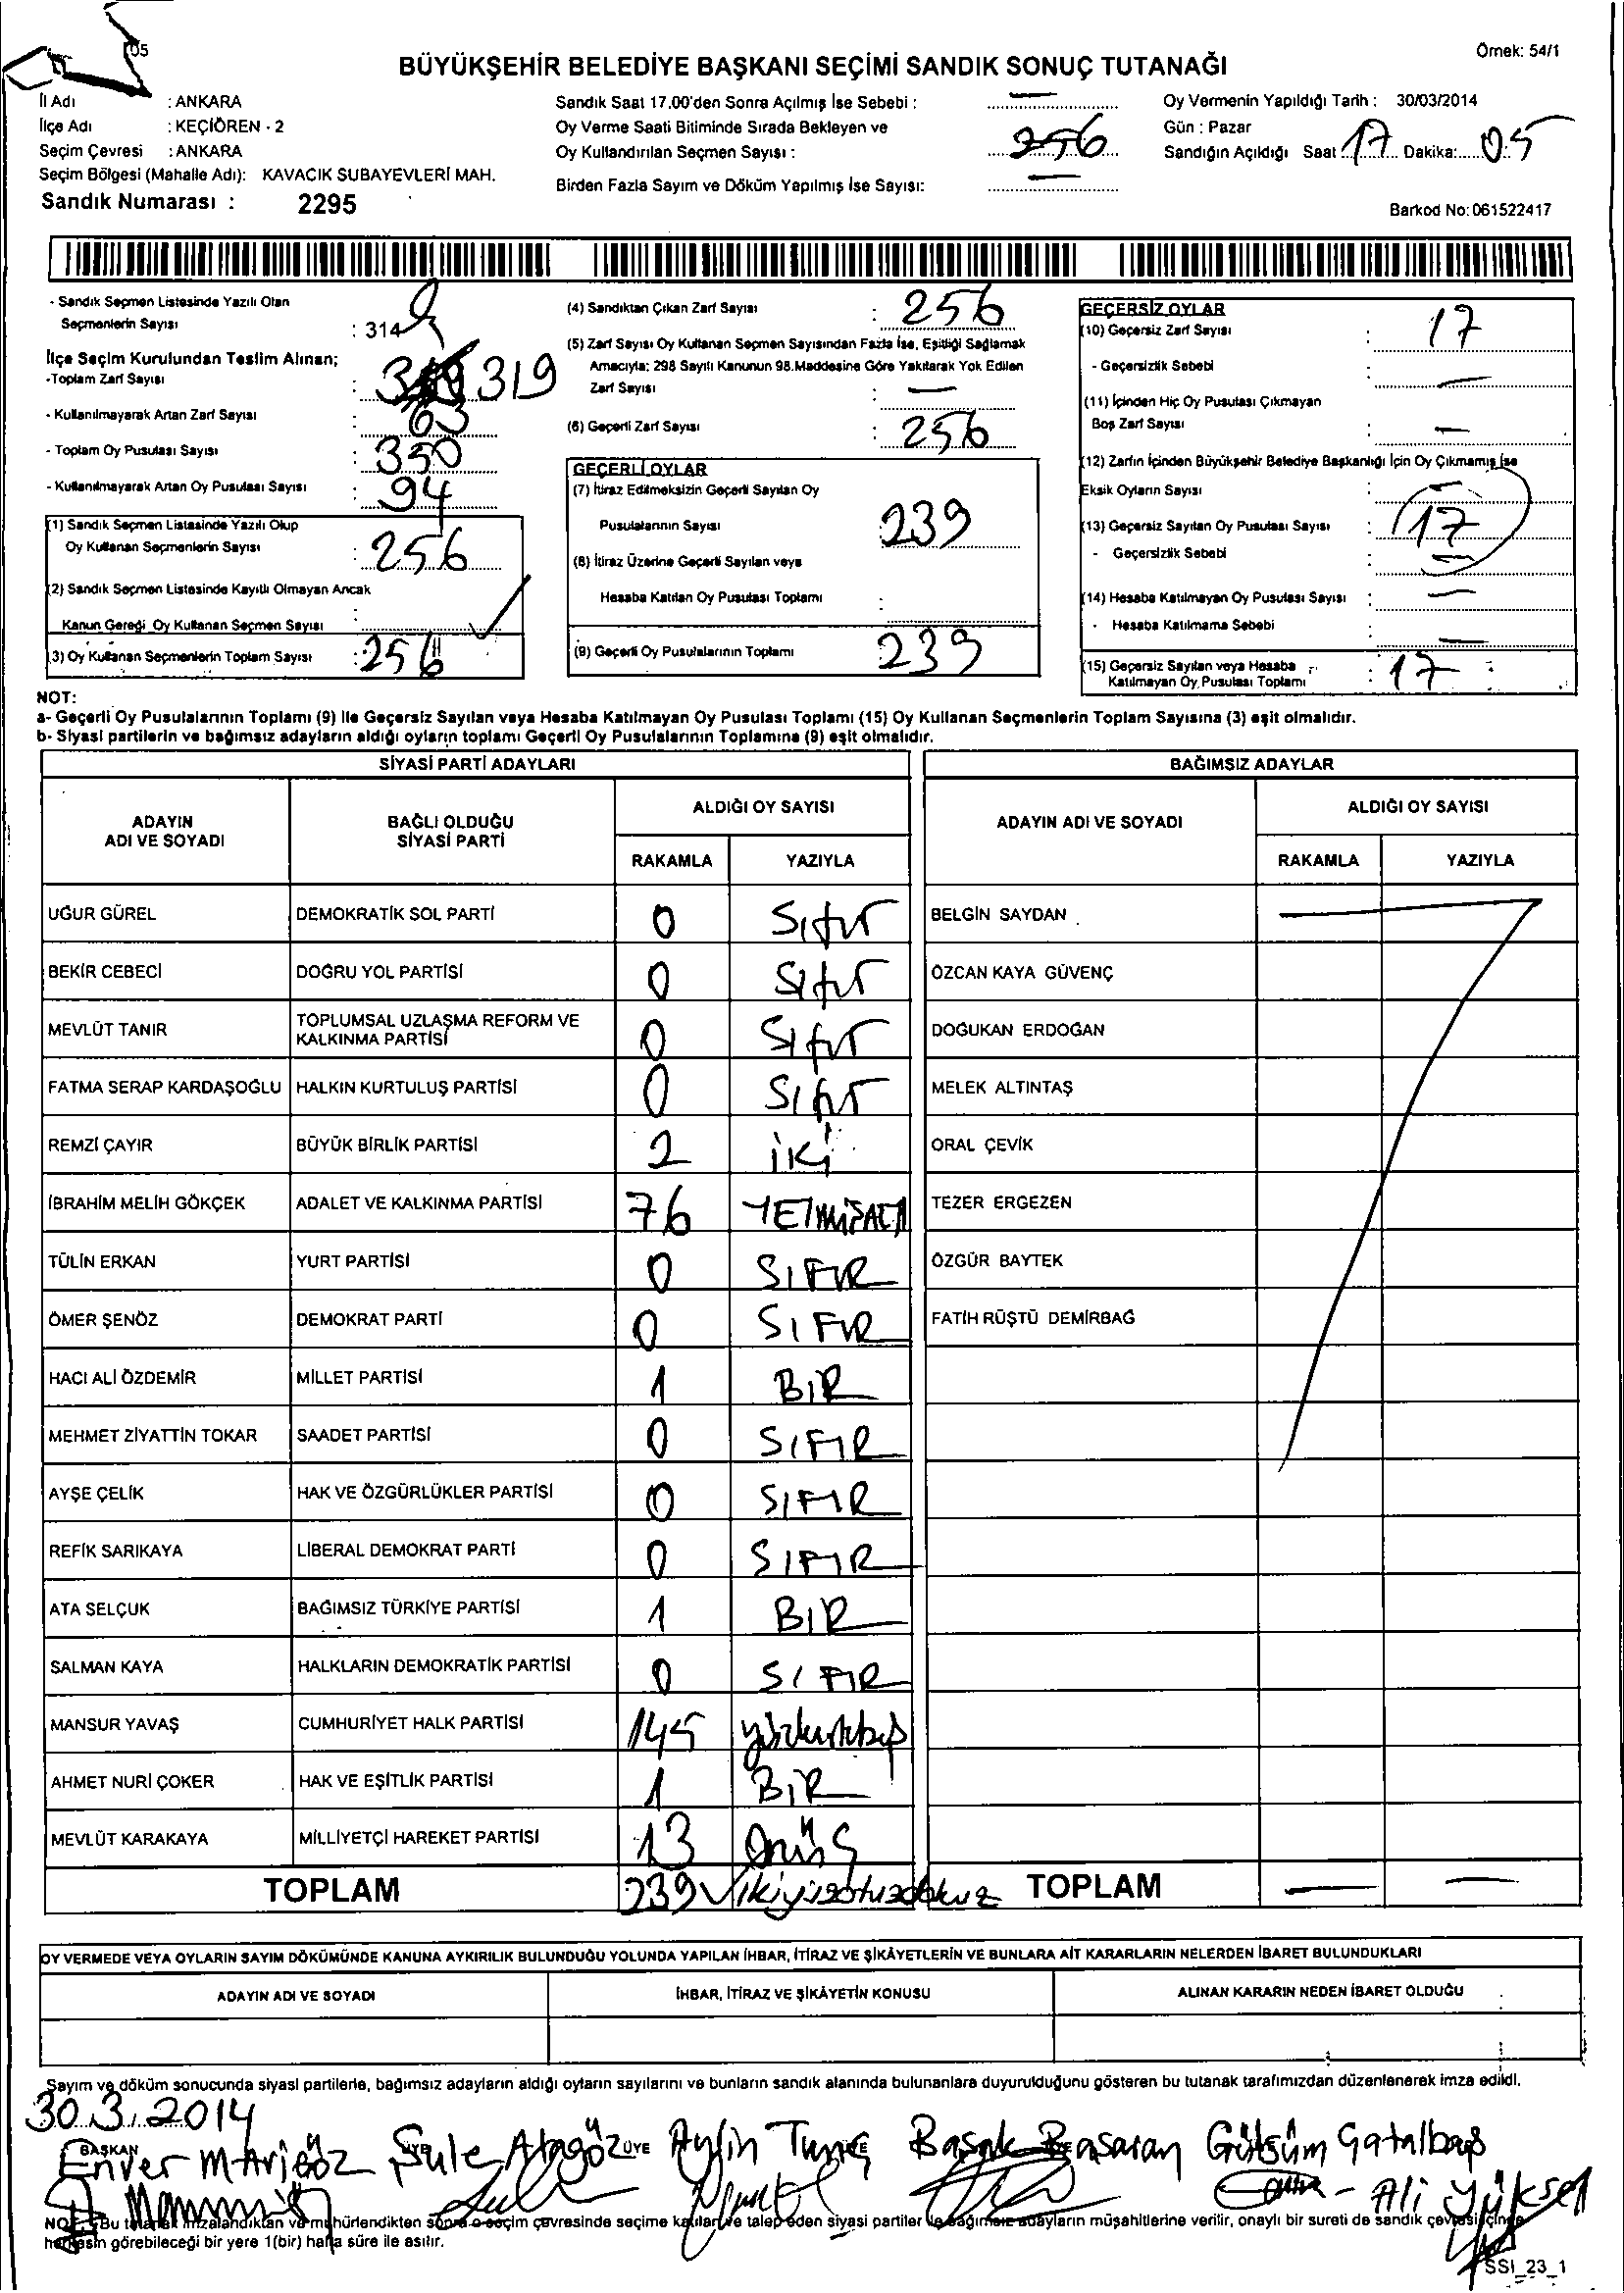 05
Örnek: 54/1
BÜYÜKŞEHİR BELEDİYE BAŞKANI SEÇİMİ SANDIK SONUÇ TUTANAĞI
İl Adı : ANKARA
İlçe Adı : KEÇİÖREN - 2
Seçim Çevresi : ANKARA
Seçim Bölgesi (Mahalle Adı): KAVACIK SUBAYEVLERİ MAH.
Sandık Numarası : 2295
Sandık Saat 17.00'den Sonra Açılmış İse Sebebi : —
Oy Verme Saati Bitiminde Sırada Bekleyen ve
Oy Kullandırılan Seçmen Sayısı : 256
Birden Fazla Sayım ve Döküm Yapılmış İse Sayısı: —
Oy Vermenin Yapıldığı Tarih : 30/03/2014
Gün : Pazar
Sandığın Açıldığı Saat 17 Dakika: 05
Barkod No: 061522417
- Sandık Seçmen Listesinde Yazılı Olan
Seçmenlerin Sayısı : 314
İlçe Seçim Kurulundan Teslim Alınan;
-Toplam Zarf Sayısı : 319
- Kullanılmayarak Artan Zarf Sayısı : 63
- Toplam Oy Pusulası Sayısı : 350
- Kullanılmayarak Artan Oy Pusulası Sayısı : 94
(1) Sandık Seçmen Listesinde Yazılı Olup
Oy Kullanan Seçmenlerin Sayısı : 256
(2) Sandık Seçmen Listesinde Kayıtlı Olmayan Ancak
Kanun Gereği Oy Kullanan Seçmen Sayısı :
(3) Oy Kullanan Seçmenlerin Toplam Sayısı : 256
(4) Sandıktan Çıkan Zarf Sayısı : 256
(5) Zarf Sayısı Oy Kullanan Seçmen Sayısından Fazla İse, Eşitliği Sağlamak
Amacıyla: 298 Sayılı Kanunun 98.Maddesine Göre Yakılarak Yok Edilen
Zarf Sayısı : —
(6) Geçerli Zarf Sayısı : 256
GEÇERLİ OYLAR
(7) İtiraz Edilmeksizin Geçerli Sayılan Oy
Pusulalarının Sayısı : 239
(8) İtiraz Üzerine Geçerli Sayılan veya
Hesaba Katılan Oy Pusulası Toplamı :
(9) Geçerli Oy Pusulalarının Toplamı 239
GEÇERSİZ OYLAR
(10) Geçersiz Zarf Sayısı : 17
- Geçersizlik Sebebi : —
(11) İçinden Hiç Oy Pusulası Çıkmayan
Boş Zarf Sayısı : —
(12) Zarfın İçinden Büyükşehir Belediye Başkanlığı İçin Oy Çıkmamış İse
Eksik Oyların Sayısı : —
(13) Geçersiz Sayılan Oy Pusulası Sayısı : 17
- Geçersizlik Sebebi : —
(14) Hesaba Katılmayan Oy Pusulası Sayısı : —
- Hesaba Katılmama Sebebi : —
(15) Geçersiz Sayılan veya Hesaba
Katılmayan Oy Pusulası Toplamı : 17
NOT:
a- Geçerli Oy Pusulalarının Toplamı (9) ile Geçersiz Sayılan veya Hesaba Katılmayan Oy Pusulası Toplamı (15) Oy Kullanan Seçmenlerin Toplam Sayısına (3) eşit olmalıdır.
b- Siyasi partilerin ve bağımsız adayların aldığı oyların toplamı Geçerli Oy Pusulalarının Toplamına (9) eşit olmalıdır.
SİYASİ PARTİ ADAYLARI
ADAYIN ADI VE SOYADI BAĞLI OLDUĞU SİYASİ PARTİ ALDIĞI OY SAYISI
RAKAMLA YAZIYLA
UĞUR GÜREL DEMOKRATİK SOL PARTİ 0 Sıfır
BEKİR CEBECİ DOĞRU YOL PARTİSİ 0 Sıfır
MEVLÜT TANIR TOPLUMSAL UZLAŞMA REFORM VE KALKINMA PARTİSİ 0 Sıfır
FATMA SERAP KARDAŞOĞLU HALKIN KURTULUŞ PARTİSİ 0 Sıfır
REMZİ ÇAYIR BÜYÜK BİRLİK PARTİSİ 2 iki
İBRAHİM MELİH GÖKÇEK ADALET VE KALKINMA PARTİSİ 76 YETMİŞALTI
TÜLİN ERKAN YURT PARTİSİ 0 SIFIR
ÖMER ŞENÖZ DEMOKRAT PARTİ 0 SIFIR
HACI ALİ ÖZDEMİR MİLLET PARTİSİ 1 BİR
MEHMET ZİYATTİN TOKAR SAADET PARTİSİ 0 SIFIR
AYŞE ÇELİK HAK VE ÖZGÜRLÜKLER PARTİSİ 0 SIFIR
REFİK SARIKAYA LİBERAL DEMOKRAT PARTİ 0 SIFIR
ATA SELÇUK BAĞIMSIZ TÜRKİYE PARTİSİ 1 BİR
SALMAN KAYA HALKLARIN DEMOKRATİK PARTİSİ 0 SIFIR
MANSUR YAVAŞ CUMHURİYET HALK PARTİSİ 145 yüzkırkbeş
AHMET NURİ ÇOKER HAK VE EŞİTLİK PARTİSİ 1 BİR
MEVLÜT KARAKAYA MİLLİYETÇİ HAREKET PARTİSİ 13 onüç
TOPLAM 239 ikiyüzotuzdokuz
BAĞIMSIZ ADAYLAR
ADAYIN ADI VE SOYADI ALDIĞI OY SAYISI
RAKAMLA YAZIYLA
BELGİN SAYDAN
ÖZCAN KAYA GÜVENÇ
DOĞUKAN ERDOĞAN
MELEK ALTINTAŞ
ORAL ÇEVİK
TEZER ERGEZEN
ÖZGÜR BAYTEK
FATİH RÜŞTÜ DEMİRBAĞ
TOPLAM — —
OY VERMEDE VEYA OYLARIN SAYIM DÖKÜMÜNDE KANUNA AYKIRILIK BULUNDUĞU YOLUNDA YAPILAN İHBAR, İTİRAZ VE ŞİKÂYETLERİN VE BUNLARA AİT KARARLARIN NELERDEN İBARET BULUNDUKLARI
ADAYIN ADI VE SOYADI İHBAR, İTİRAZ VE ŞİKÂYETİN KONUSU ALINAN KARARIN NEDEN İBARET OLDUĞU
Sayım ve döküm sonucunda siyasi partilerle, bağımsız adayların aldığı oyların sayılarını ve bunların sandık alanında bulunanlara duyurulduğunu gösteren bu tutanak tarafımızdan düzenlenerek imza edildi.
30.3.2014
BAŞKAN ÜYE ÜYE
Enver Şule Atagöz Aylin Tunç Başak Başaran Gülsüm Çatalbaş
Ali Yüksel
NOT: Bu tutanak imzalandıktan ve mühürlendikten sonra o seçim çevresinde seçime katılan ve talep eden siyasi partiler ile bağımsız adayların müşahitlerine verilir, onaylı bir sureti de sandık çevresi içinde
herkesin görebileceği bir yere 1(bir) hafta süre ile asılır.
SSI_23_1